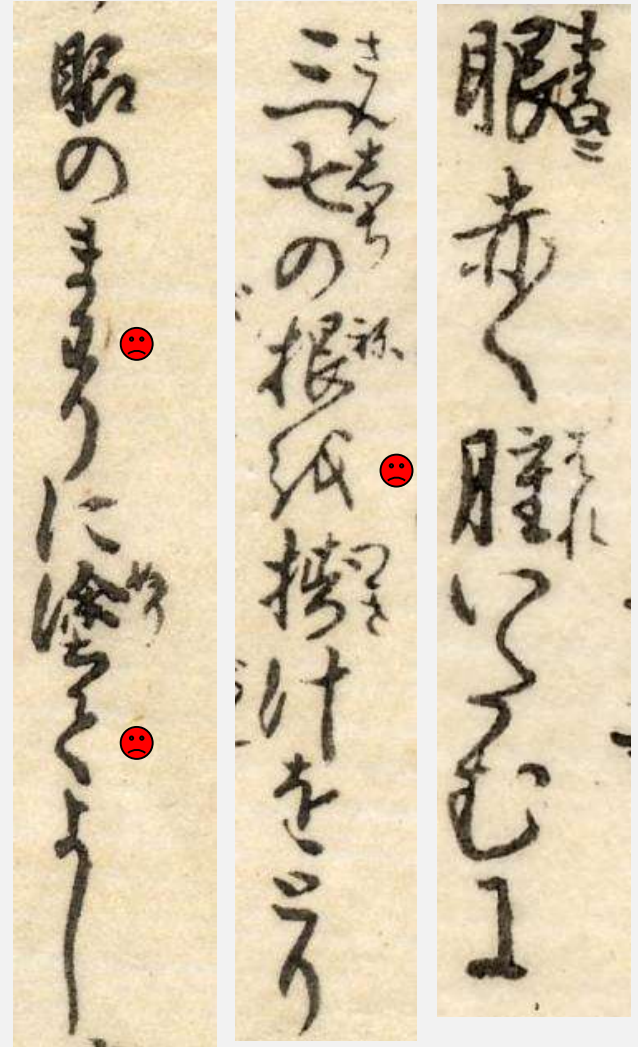 眼赤く腫いたむに
三七の根を搗汁をとり
眼のまわりに塗てよし